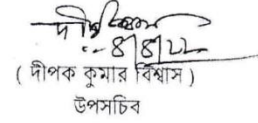 ৪|৪|২২
( দীপক কুমার বিশ্বাস )
উপসচিব